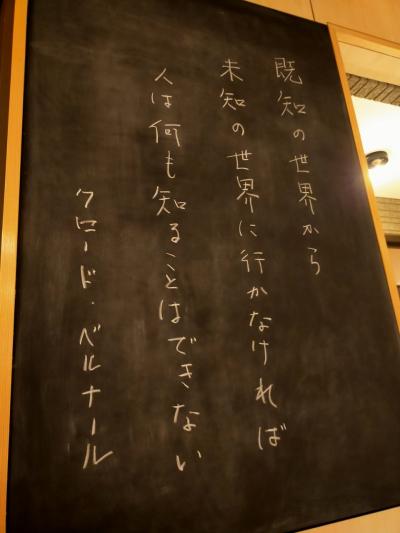 既知の世界から
未知の世界に行かなければ
人は何も知ることはできない
クロード・ベルナール